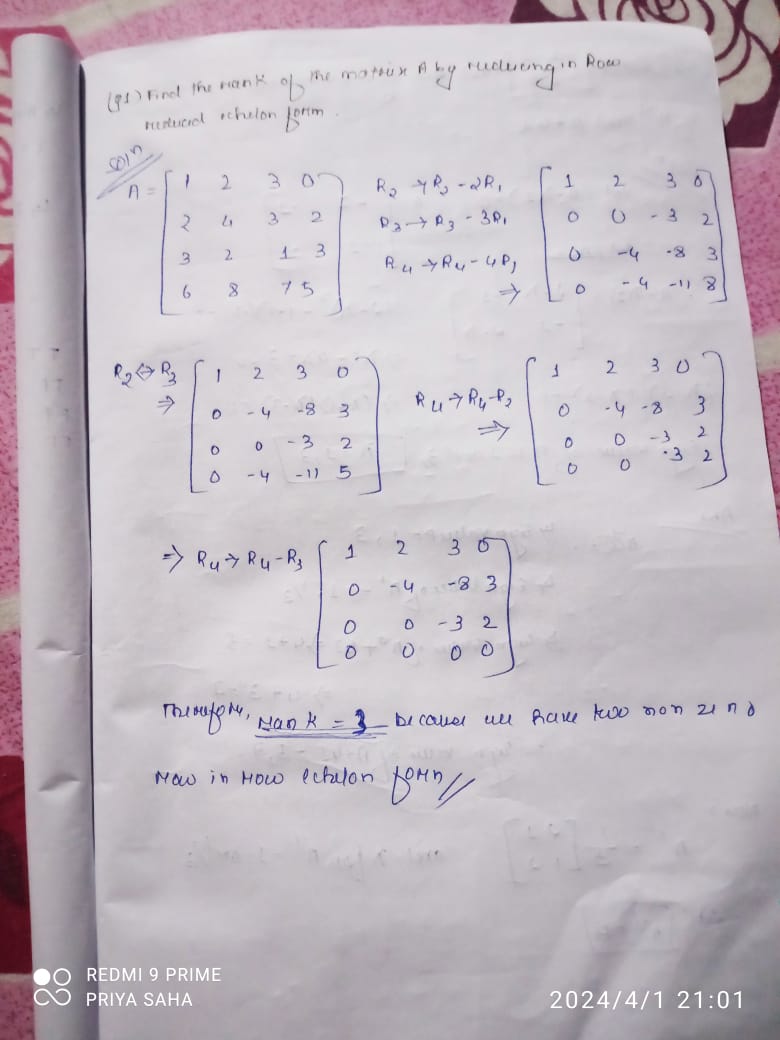 (Q1) Find the rank of the matrix A by reducing in Row
reduced echelon form.
Soln
A = [ 1 2 3 0
2 4 3 2
3 2 1 3
6 8 7 5 ]
R2 → R2 - 2R1
R3 → R3 - 3R1
R4 → R4 - 4R1
⇒
[ 1 2 3 0
0 0 -3 2
0 -4 -8 3
0 -4 -11 8 ]
R2 ↔ R3
⇒
[ 1 2 3 0
0 -4 -8 3
0 0 -3 2
0 -4 -11 5 ]
R4 → R4 - R2
⇒
[ 1 2 3 0
0 -4 -8 3
0 0 -3 2
0 0 -3 2 ]
⇒ R4 → R4 - R3
[ 1 2 3 0
0 -4 -8 3
0 0 -3 2
0 0 0 0 ]
Therefore, rank = 3 because we have two non zero
row in row echelon form //
REDMI 9 PRIME
PRIYA SAHA
2024/4/1 21:01